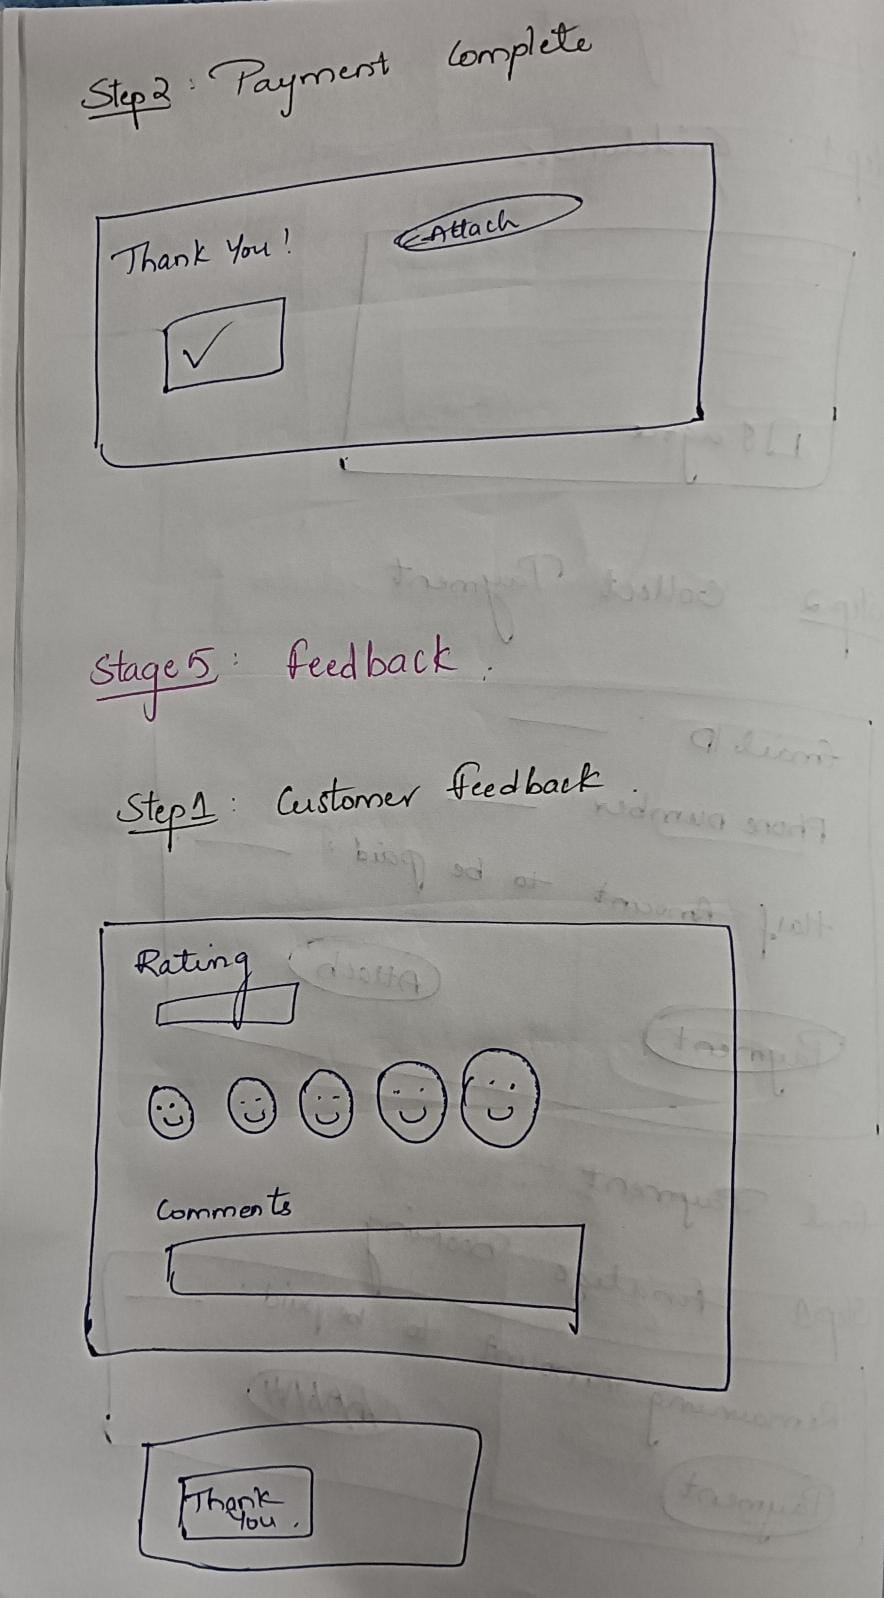 Step2: Payment Complete
Thank You!
Attach
Stage 5: feedback.
Step1: Customer feedback.
Rating
Comments
Thank
You.